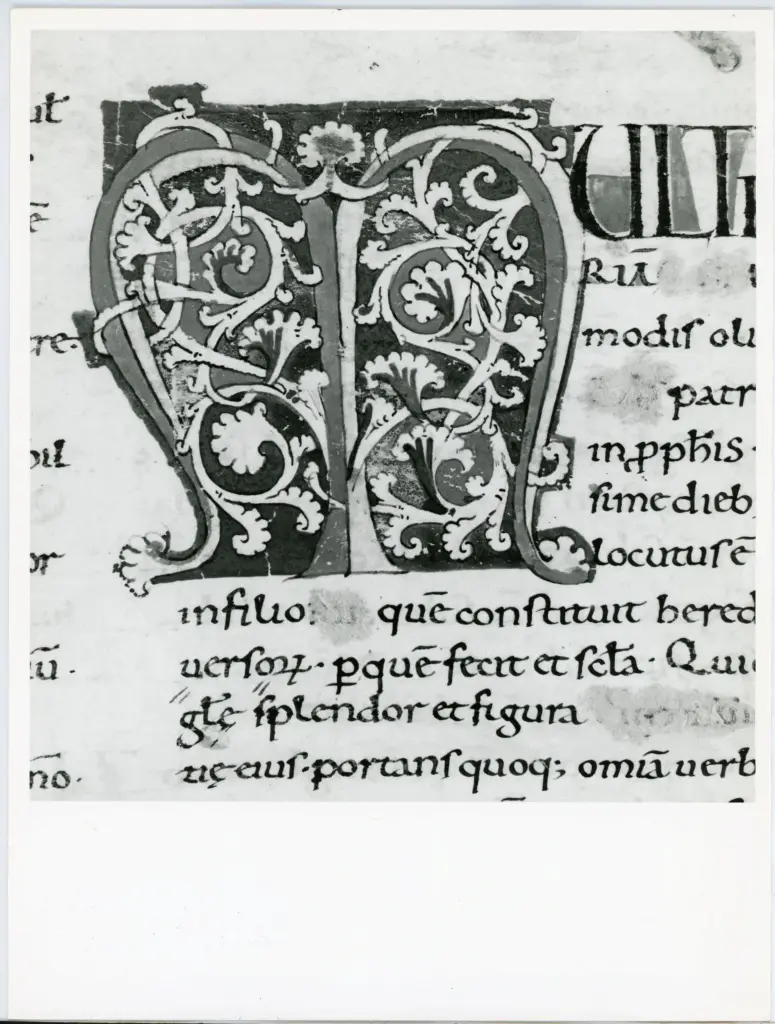 MULTI
RŪ
modis oli
patr
in ꝓph̄is
sime dieb
locutus ē
in filio quē constituit hered
uersoꝝ · ꝑ quē fecit et scła · Qui
głę splendor et figura
nę eius · portans quoq; omīa uerb